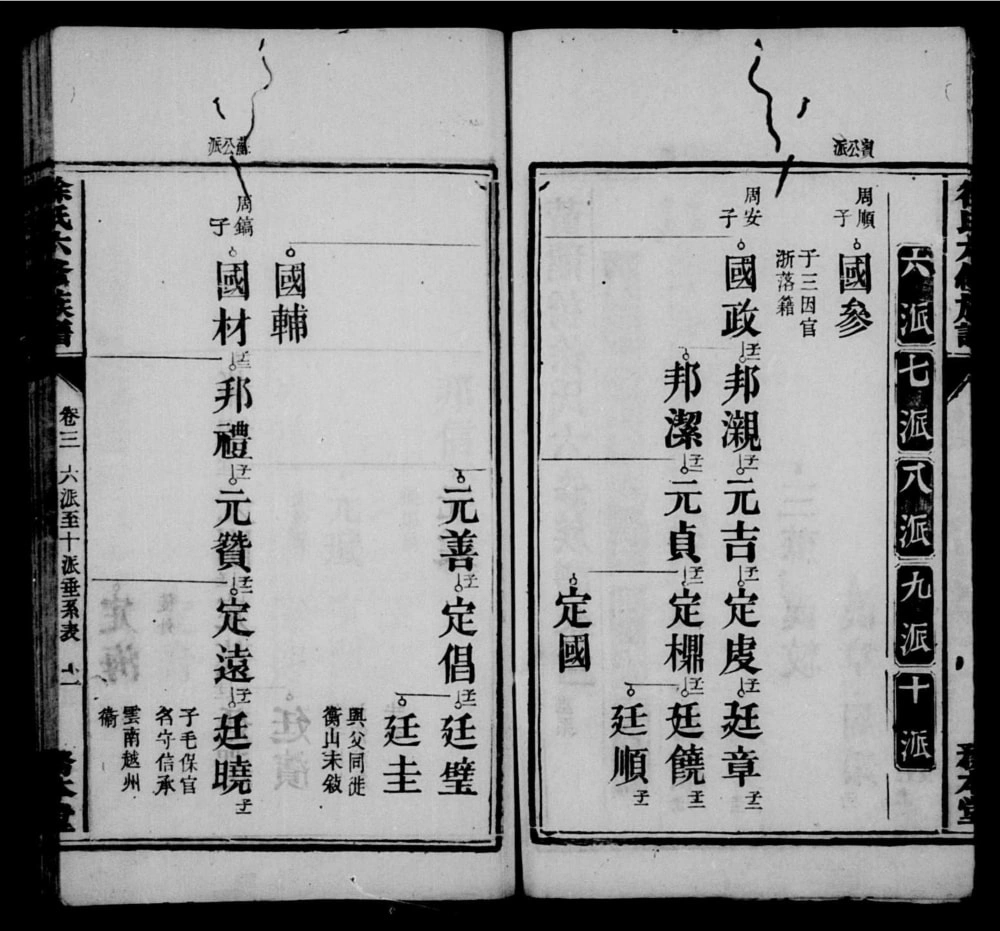 寳公派
六派
七派
八派
九派
十派
周順子
國參
于三因官
浙落籍
周安子
國政
子二
邦瀙
子一
元吉
子一
定虔
子一
廷章
子二
邦潔
子二
元貞
子一
定櫮
子二
廷饒
子三
廷順
子二
定國
徐氏六修族譜
務本堂
元善
子一
定倡
子二
廷璧
廷圭
興父同徙
衡山未敍
國輔
周鎬子
國材
子一
邦禮
子二
元贊
子二
定遠
子一
廷曉
子一
子毛保官
名守信承
雲南越州
衛
公派
徐氏六修族譜
卷三
六派至十派垂系表
十一
務本堂